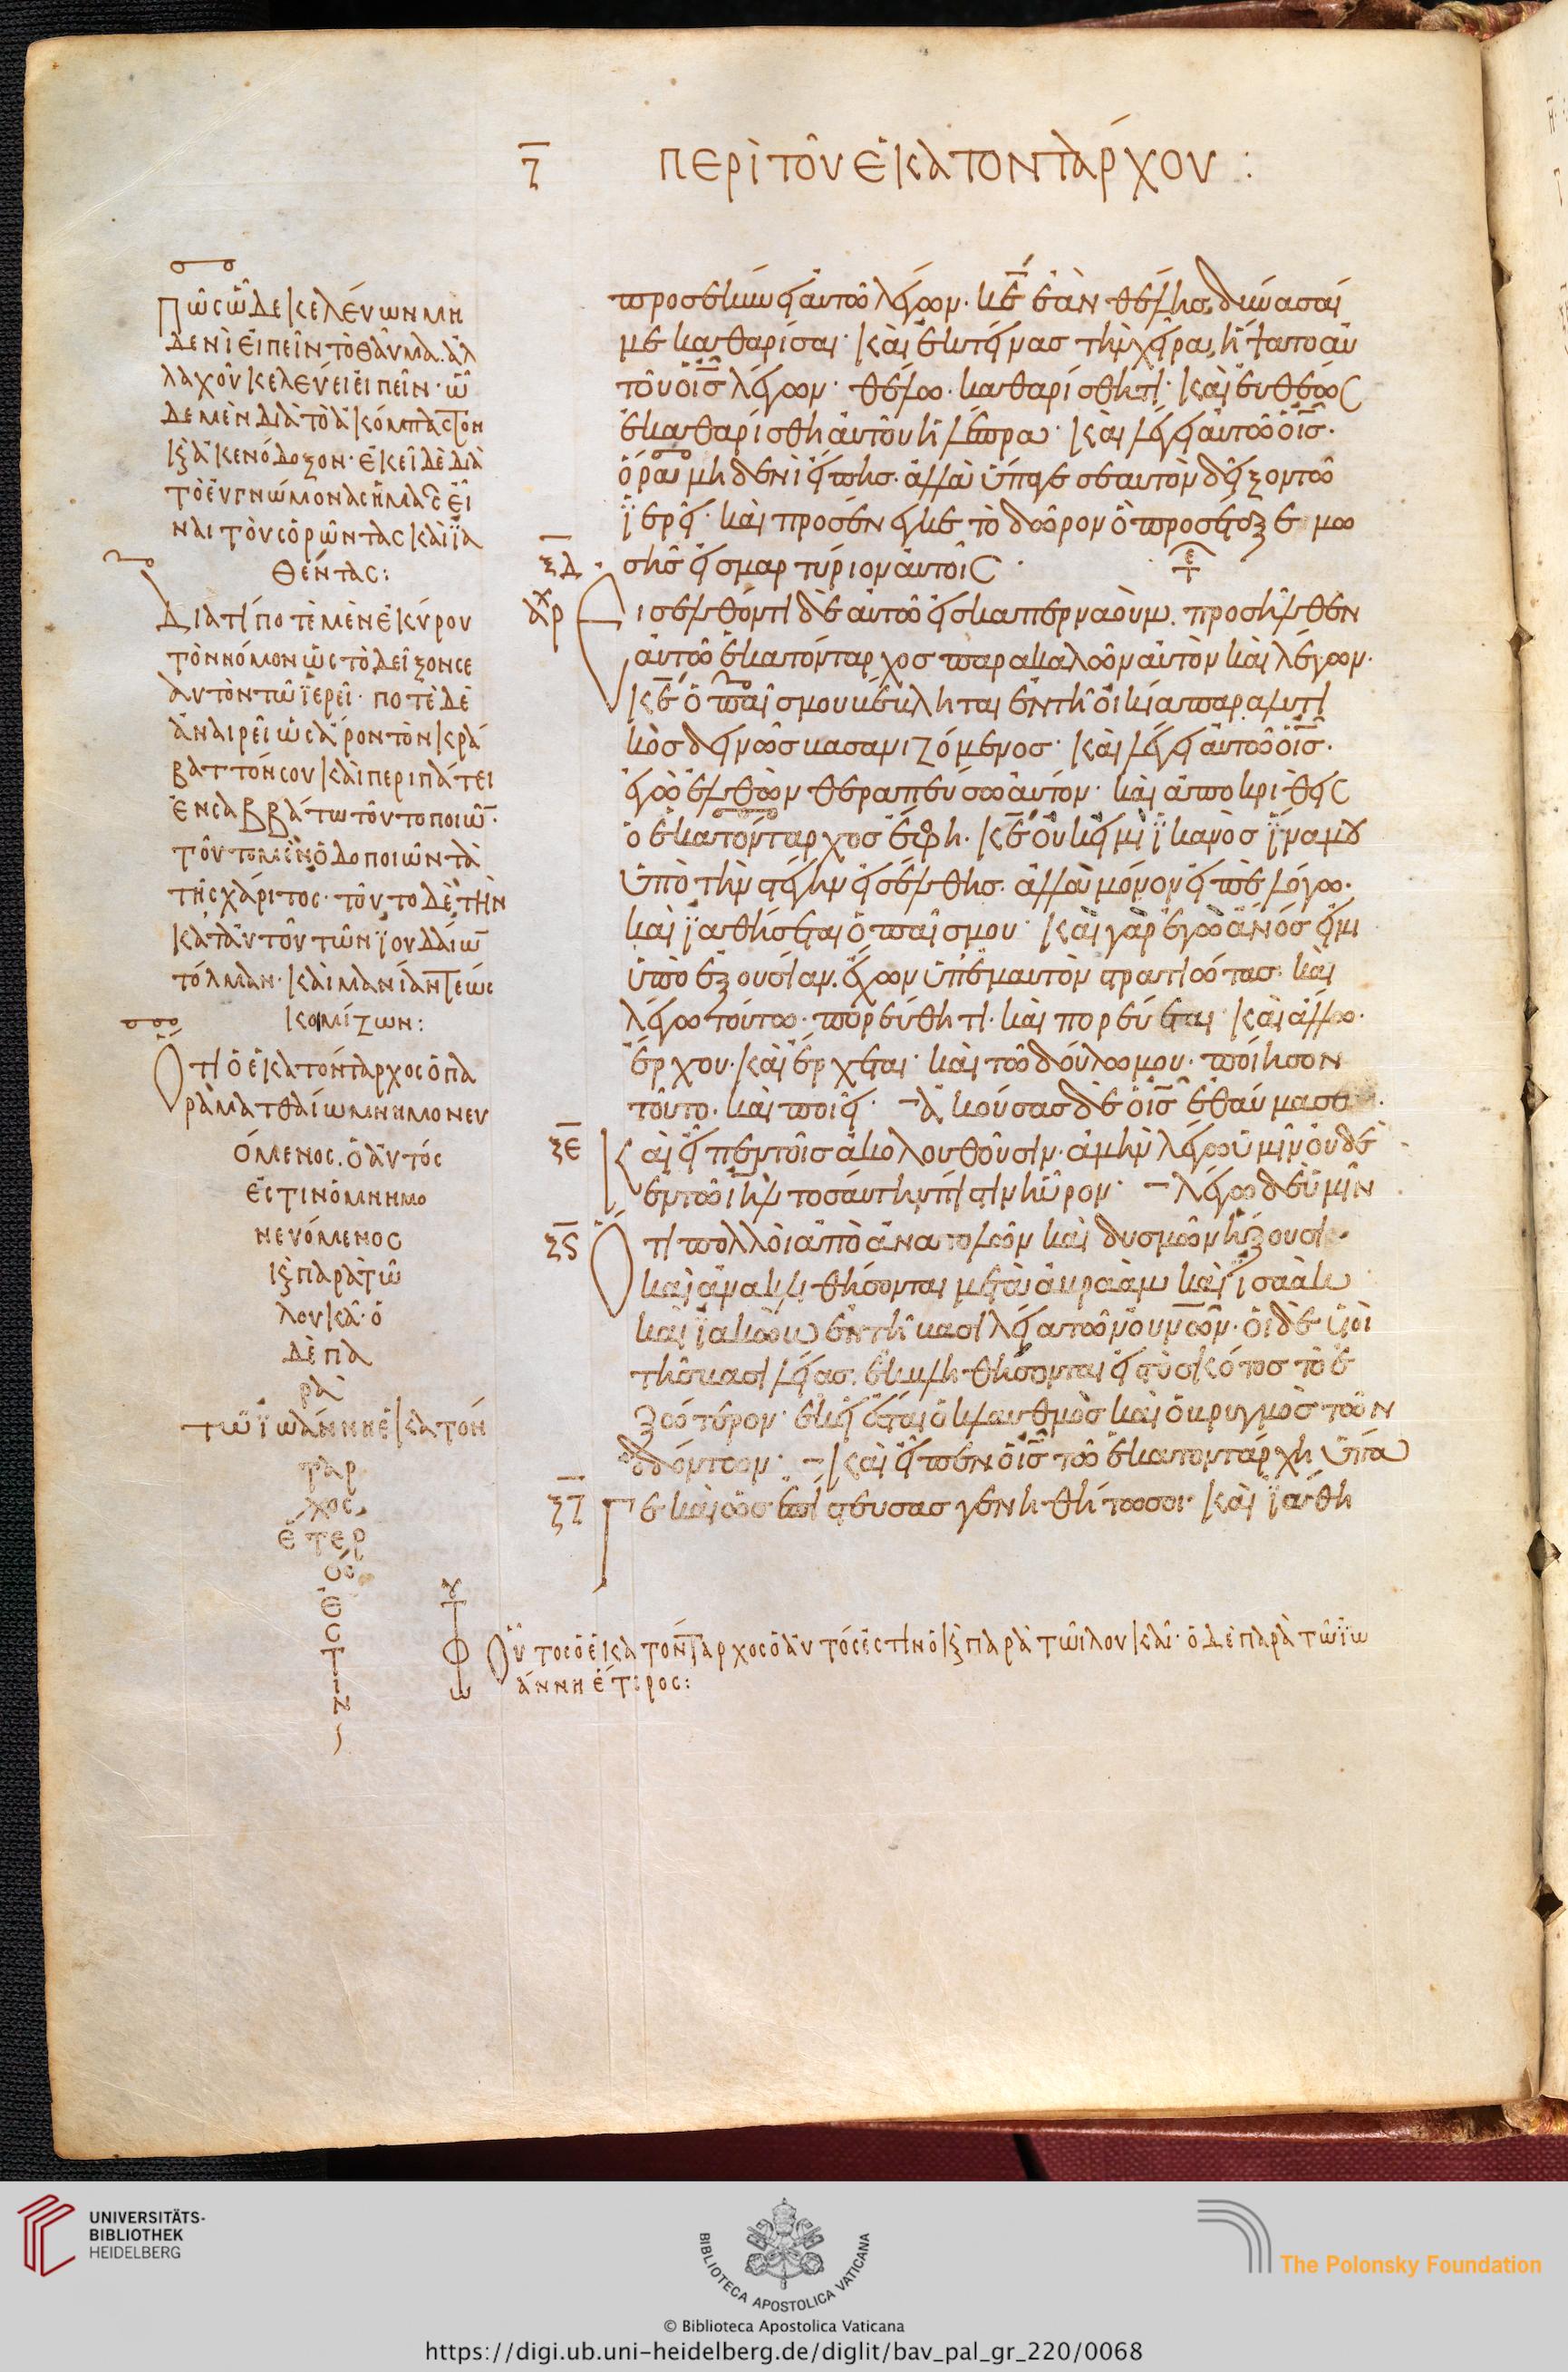 ζ̄ ΠΕΡῚ ΤΟῦ ἙΚΑΤΟΝΤΆΡΧΟΥ :
προσεκύνει αὐτῶ λέγων· κ̅ε̅ ἐὰν θέλης, δύνασαί
με καθαρίσαι· καὶ ἐκτείνας τὴν χεῖρα, ἥψατο αὐ
τοῦ ὁ ι̅ς̅ λέγων· θέλω. καθαρίσθητι· καὶ εὐθέως
ἐκαθαρίσθη αὐτοῦ ἡ λέπρα· καὶ λέγει αὐτῶ ὁ ι̅ς̅·
ὅρα μηδενὶ εἴπης· ἀλλὰ ὕπαγε σεαυτὸν δεῖξον τῶ
ἱερεῖ· καὶ προσένεγκε τὸ δῶρον ὃ προσέταξε μω
ξ̅δ̅ σῆς εἰς μαρτύριον αὐτοῖς·
ἀρχ Εἰσελθόντι δὲ αὐτῶ εἰς καπερναοὺμ. προσῆλθεν
αὐτῶ ἑκατόνταρχος παρακαλῶν αὐτὸν καὶ λέγων·
κ̅ε̅ ὁ παῖς μου βέβληται ἐν τῆ οἰκία παραλυτι
κὸς δεινῶς βασανιζόμενος· καὶ λέγει αὐτῶ ὁ ι̅ς̅·
ἐγὼ ἐλθὼν θεραπεύσω αὐτόν· καὶ ἀποκριθεὶς
ὁ ἑκατόνταρχος ἔφη. κ̅ε̅ οὐκ εἰμὶ ἱκανὸς ἵνα μου
ὑπὸ τὴν στέγην εἰσέλθης· ἀλλὰ μόνον εἰπὲ λόγω·
καὶ ἰαθήσεται ὁ παῖς μου· καὶ γὰρ ἐγὼ ἄνο̅ς εἰμι
ὑπὸ ἐξουσίαν. ἔχων ὑπ' ἐμαυτὸν στρατιώτας· καὶ
λέγω τούτω· πορεύθητι· καὶ πορεύεται· καὶ ἄλλω·
ἔρχου· καὶ ἔρχεται· καὶ τῶ δούλω μου· ποίησον
τοῦτο· καὶ ποιεῖ· ἀκούσας δὲ ὁ ι̅ς̅ ἐθαύμασε
ξ̅ε̅ καὶ εἶπεν τοῖς ἀκολουθοῦσιν· ἀμὴν λέγω ὑμῖν οὐδὲ
ἐν τῶ ι̅η̅λ τοσαύτην πίστιν ηὗρον· λέγω δὲ ὑμῖν
ξ̅ς̅ ὅτι πολλοὶ ἀπὸ ἀνατολῶν καὶ δυσμῶν ἥξουσι
καὶ ἀνακλιθήσονται μετὰ ἀβραὰμ καὶ ἰσαὰκ
καὶ ἰακὼβ ἐν τῆ βασιλεία τῶν ο̅υ̅ν̅ῶν· οἱ δὲ υἱοὶ
τῆς βασιλείας. ἐκβληθήσονται εἰς τὸ σκότος τὸ ἐ
ξώτερον· ἐκεῖ ἔσται ὁ κλαυθμὸς καὶ ὁ βρυγμὸς τῶν
ὀδόντων· καὶ εἶπεν ὁ ι̅ς̅ τῶ ἑκατοντάρχη ὕπα
ξ̅ζ̅ γε καὶ ὡς ἐπίστευσας γενηθήτω σοι· καὶ ἰάθη
Πῶς ὧδε κελεύων μη
δενὶ εἰπεῖν τὸ θαῦμα. ἀλ
λαχοῦ κελεύει εἰπεῖν· ὧ
δε μὲν διὰ τὸ ἀκόμπαστον
κ(αὶ) ἀκενόδοξον· ἐκεῖ δὲ διὰ
τὸ εὐγνώμονας ἡμᾶς εἶ
ναι τοὺς ὁρῶντας καὶ ἰα
θέντας:
Διατί ποτὲ μὲν ἐκύρου
τὸν νόμον ὡς τὸ δεῖξον σε
αυτὸν τῶ ἱερεῖ· ποτὲ δὲ
ἀναιρεῖ ὡς ἆρον τὸν κρά
βαττόν σου καὶ περιπάτει
ἐν σαββάτω τοῦτο ποιῶ̅·
τοῦτο μὲν ὁδοποιῶν τὰ
τῆς χάριτος· τοῦτο δὲ τὴν
κατ' αὐτοῦ τῶν ἰουδαίω̅
τόλμαν· καὶ μανίαν
κομίζων:
Ὅτι ὁ ἑκατόνταρχος ὁ πα
ρὰ ματθαίω μνημονευ
όμενος. ὁ αὐτός
ἐστιν ὁ μνημο
νευόμενος
κ(αὶ) παρὰ τῶ
λουκᾶ· ὁ
δὲ πα
ρὰ
τῶ ἰωάννη ἑκατόν
ταρ
χος
ἕτερ
ός
ἐ
σ
τ
ι
ν
Οὗτος ὁ ἑκατόνταρχος ὁ αὐτός ἐστιν ὁ κ(αὶ) παρὰ τῶ λουκᾶ· ὁ δὲ παρὰ τῶ ἰω
άννη ἕτερος:
UNIVERSITÄTS-
BIBLIOTHEK
HEIDELBERG
BIBLIOTECA APOSTOLICA VATICANA
The Polonsky Foundation
© Biblioteca Apostolica Vaticana
https://digi.ub.uni-heidelberg.de/diglit/bav_pal_gr_220/0068